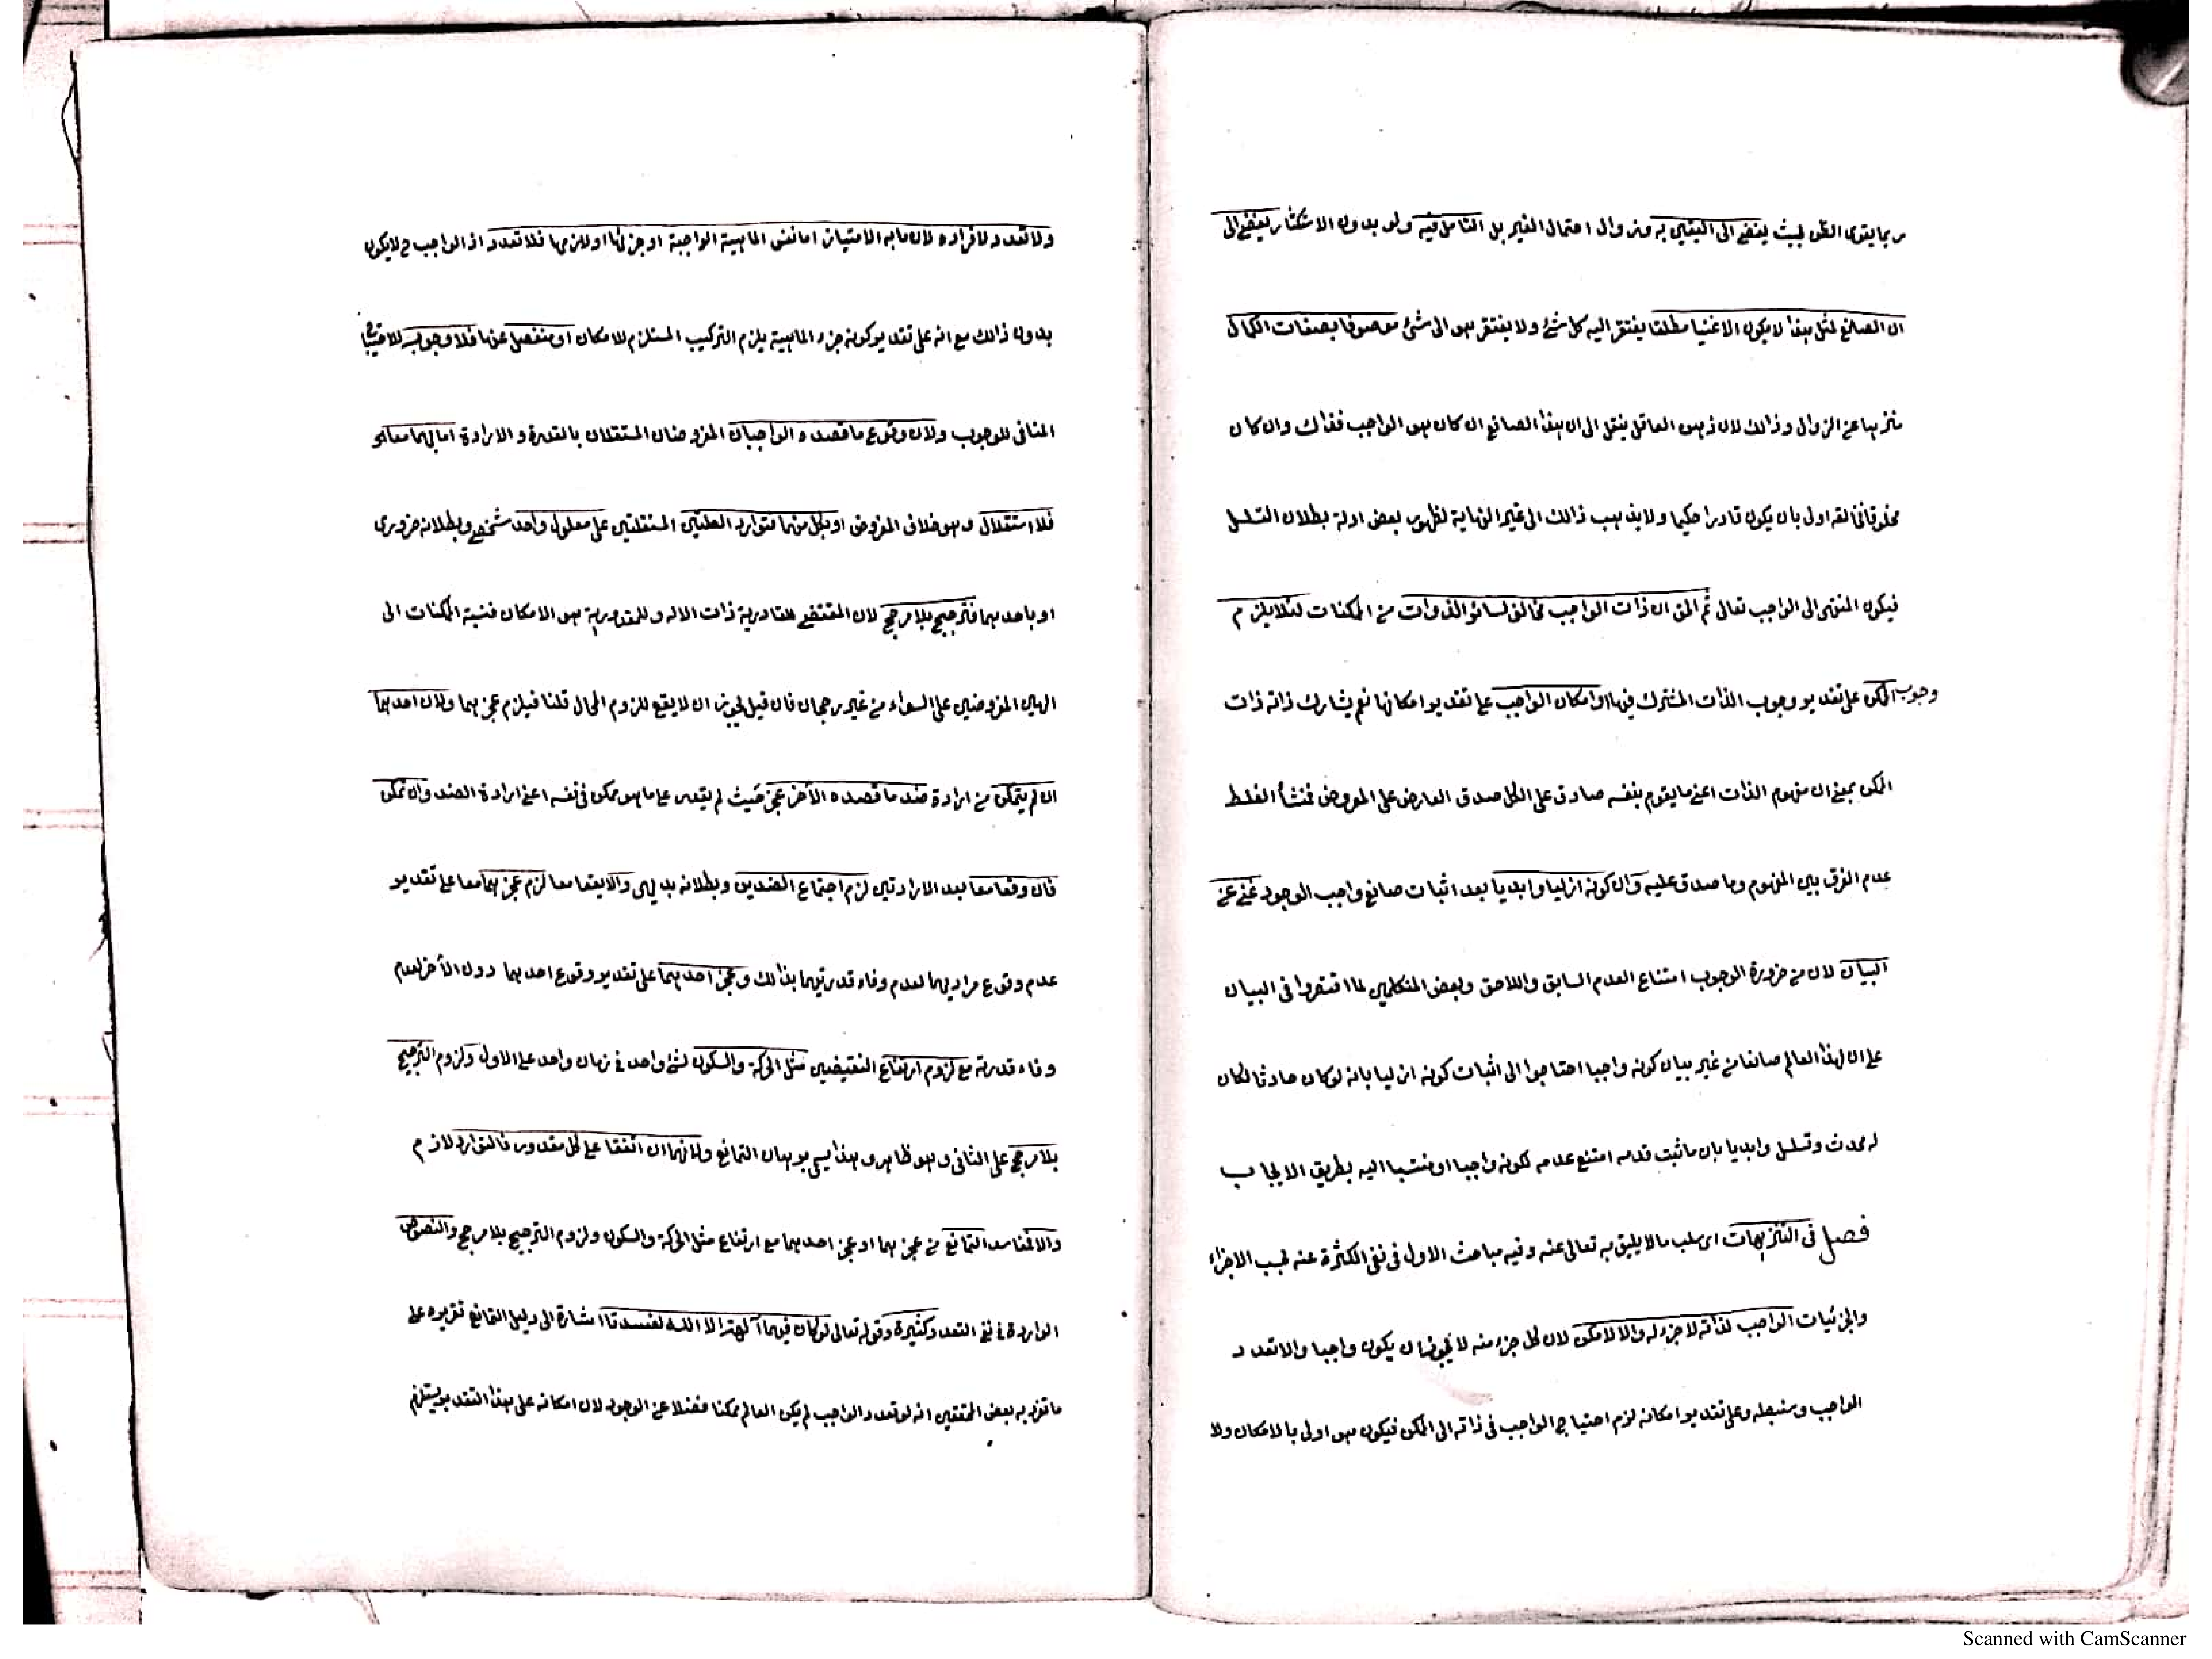 ربما يقوى الظن بحيث يفضي الى اليقين به وزوال احتمال الغير بل التامل فيه ولو بدون الاستكثار يفضي الى
ان الصانع لمثل هذا لا يكون الا غنيا مطلقا يفتقر اليه كل شئ ولا يفتقر هو الى شئ موصوفا بصفات الكمال
منزها عن الزوال وذالك لان ذهن العاقل ينتقل الى ان هذا الصانع ان كان هو الواجب فذاك وان كان
مخلوقا فخالقه اولى بان يكون قادرا حكيما ولا يذهب ذالك الى غير النهاية لظهور بعض ادلة بطلان التسلسل
فيكون المنتهى الى الواجب تعالى ثم الحق ان ذات الواجب مخالف لسائر الذوات من الممكنات لئلا يلزم
وجوب الممكن على تقدير وجوب الذات المشترك فيها او امكان الواجب على تقدير امكانها نعم يشارك ذاته ذات
الممكن بمعنى ان مفهوم الذات اعني ما يقوم بنفسه صادق على الكل صدق العارض على المعروض فمنشأ الغلط
عدم الفرق بين المفهوم وما صدق عليه وان كونه ازليا وابديا بعد اثبات صانع واجب الوجود غني عن
البيان لان من ضرورة الوجوب امتناع العدم السابق واللاحق وبعض المتكلمين لما اقتصروا في البيان
على ان لهذا العالم صانعا من غير بيان كونه واجبا احتاجوا الى اثبات كونه ازليا بانه لو كان حادثا لكان
له محدث وتسلسل وابديا بان ما ثبت قدمه امتنع عدمه لكونه واجبا او منتسبا اليه بطريق الايجاب
فصل في التنزيهات اى سلب ما لا يليق به تعالى عنه وفيه مباحث الاول في نفى الكثرة عنه بحسب الاجزاء
والجزئيات الواجب لذاته لا جزء له والا لامكن لان كل جزء منه لا يجوز ان يكون واجبا والا تعدد
الواجب وسنبطله وعلى تقدير امكانه لزم احتياج الواجب في ذاته الى الممكن فيكون هو اولى بالامكان ولا
ولا تعدد لافراده لان ما به الامتياز اما نفس الماهية الواجبة او جزئها او لازمها فلا تعدد اذ الواجب ح لا يكون
بدون ذالك مع انه على تقدير كونه جزء الماهية يلزم التركيب المستلزم للامكان او منفصل عنها فلا وجوب للاحتياج
المنافى للوجوب ولان وقوع ما قصده الواجبان المفروضان المستقلان بالقدرة والارادة اما بهما معا
فلا استقلال وهو خلاف المفروض او بكل منهما فتوارد العلتين المستقلتين على معلول واحد شخصي وبطلانه ضرورى
او باحدهما فترجيح بلا مرجح لان المقتضي للقادرية ذات الاله وللمقدورية هو الامكان فنسبة الممكنات الى
الهين المفروضين على السواء من غير رجحان فان قيل يجوز ان لا يقع للزوم المحال قلنا فيلزم عجزهما ولان احدهما
ان لم يتمكن من ارادة ضد ما قصده الأخر عجز حيث لم يقدر على ما هو ممكن في نفسه اعني ارادة الضد وان تمكن
فان وقعا معا بعد الارادتين لزم اجتماع الضدين وبطلانه بديهى والا يقعا معا لزم عجزهما معا على تقدير
عدم وقوع مراديهما لعدم وفاء قدرتيهما بذالك وعجز احدهما على تقدير وقوع احدهما دون الأخر لعدم
وفاء قدرته مع لزوم ارتفاع النقيضين مثل الحركة والسكون لشئ واحد في زمان واحد على الاول ولزوم الترجيح
بلا مرجح على الثانى وهو ظاهر وهذا يسمى برهان التمانع ولانهما ان اتفقا على كل مقدور فالتوارد لازم
والا لمفاسد التمانع من عجزهما او عجز احدهما مع ارتفاع مثل الحركة والسكون ولزوم الترجيح بلا مرجح والنصوص
الواردة في نفى التعدد كثيرة وقوله تعالى لو كان فيهما آلهة الا الله لفسدتا اشارة الى دليل التمانع تقريره على
ما قرر به بعض المحققين انه لو تعدد الواجب لم يكن العالم ممكنا فضلا عن الوجود لان امكانه على هذا التقدير يستلزم
Scanned with CamScanner